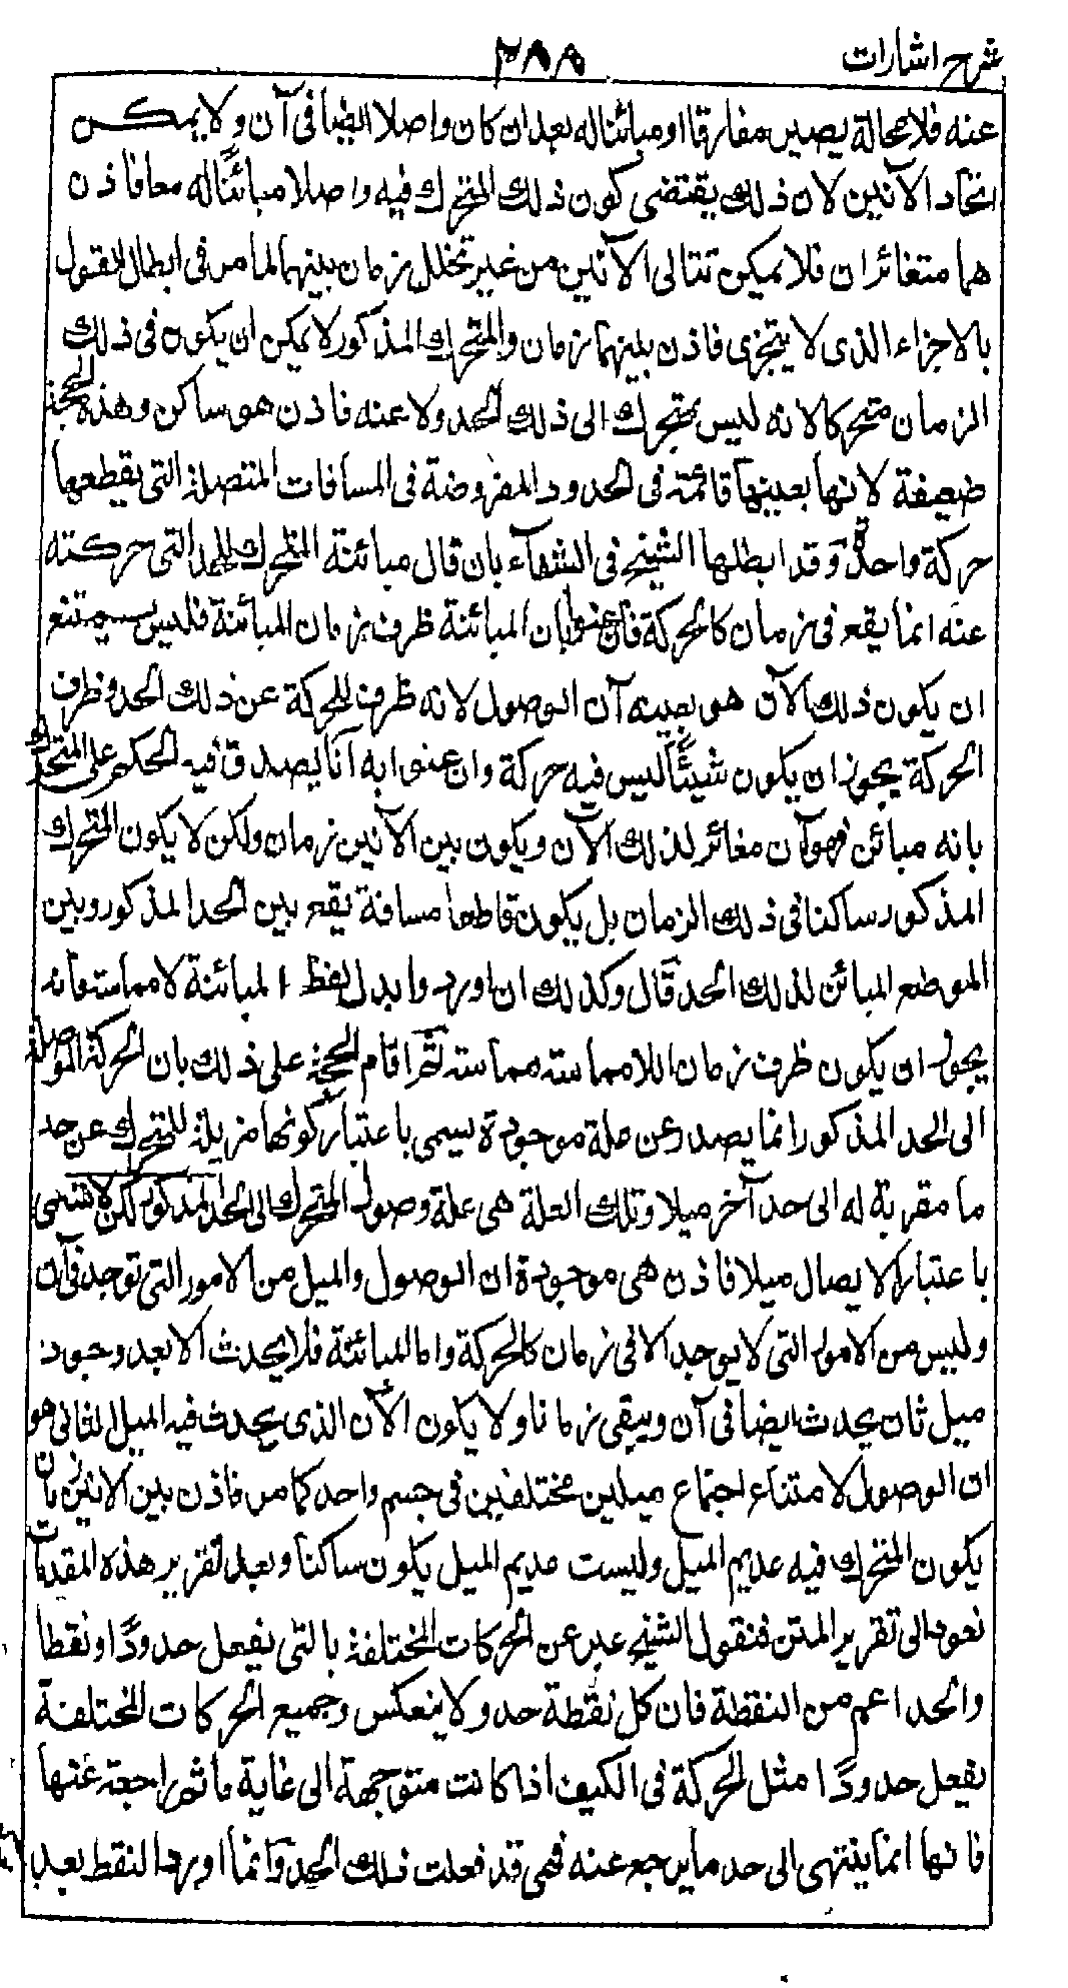 شرح اشارات
٢٨٨
عنه فلا محالة يصير مفارقا او مبائنا له بعد ان كان واصلا ايضا فى آن ولا يمكن
اتحاد الآنين لان ذلك يقتضى كون ذلك المتحرك فيه واصلا مبائنًا له معا فاذن
هما متغائران فلا يمكن تتالى الآنين من غير تخلل زمان بينهما لما مر فى ابطال القول
بالاجزاء الذى لا يتجزى فاذن بينهما زمان والمتحرك المذكور لا يمكن ان يكون فى ذلك
الزمان متحركا لانه ليس بمتحرك الى ذلك الحد ولا عنه فاذن هو ساكن وهذه الحجة
ضعيفة لانها بعينها قائمة فى الحدود المفروضة فى المسافات المتصلة التى يقطعها
حركة واحدة وقد ابطلها الشيخ فى الشفاء بان قال مبائنة المتحرك للحد التى حركته
عنه انما يقع فى زمان كالحركة فان عنوا بان المبائنة ظرف زمان المبائنة فليس يمتنع
ان يكون ذلك الآن هو بعينه آن الوصول لانه ظرف للحركة عن ذلك الحد وظرف
الحركة يجوز ان يكون شيئًا ليس فيه حركة وان عنوا به آنًا يصدق فيه الحكم على المتحرك
بانه مبائن فهو آن مغائر لذلك الآن ويكون بين الآنين زمان ولكن لا يكون المتحرك
المذكور ساكنا فى ذلك الزمان بل يكون قاطعا مسافة يقع بين الحد المذكور وبين
الموضع المبائن لذلك الحد قال وكذلك ان اوردوا بدل لفظ المبائنة لا مماسة فانه
يجوز ان يكون ظرف زمان اللامماسة مماسة ثم اقام الحجة على ذلك بان الحركة الموصلة
الى الحد المذكور انما يصدر عن علة موجودة يسمى باعتبار كونها مزيلة للمتحرك عن حد
ما مقربة له الى حد آخر ميلا وتلك العلة هى علة وصول المتحرك الى الحد المذكور لكن لا يسمى
باعتبار الايصال ميلا فاذن هى موجودة ان الوصول والميل من الامور التى توجد فى آن
وليس من الامور التى لا يوجد الا فى زمان كالحركة واما المبائنة فلا يحدث الا بعد وجود
ميل ثان يحدث ايضا فى آن ويبقى زمانا ولا يكون الآن الذى يحدث فيه الميل الثانى هو
ان الوصول لامتناع اجتماع ميلين مختلفين فى جسم واحد كما مر فاذن بين الآنين زمان
يكون المتحرك فيه عديم الميل وليست عديم الميل يكون ساكنا وبعد تقرير هذه المقدمات
نعود الى تقرير المتن فنقول الشيخ عبر عن الحركات المختلفة بالتى يفعل حدودًا ونقطا
والحد اعم من النقطة فان كل نقطة حد ولا ينعكس وجميع الحركات المختلفة
يفعل حدودًا مثل الحركة فى الكيف اذا كانت متوجهة الى غاية ما ثم راجعة عنها
فانها انما ينتهى الى حد ما يرجع عنه فهى قد فعلت ذلك الحد وانما اورد النقط بعد